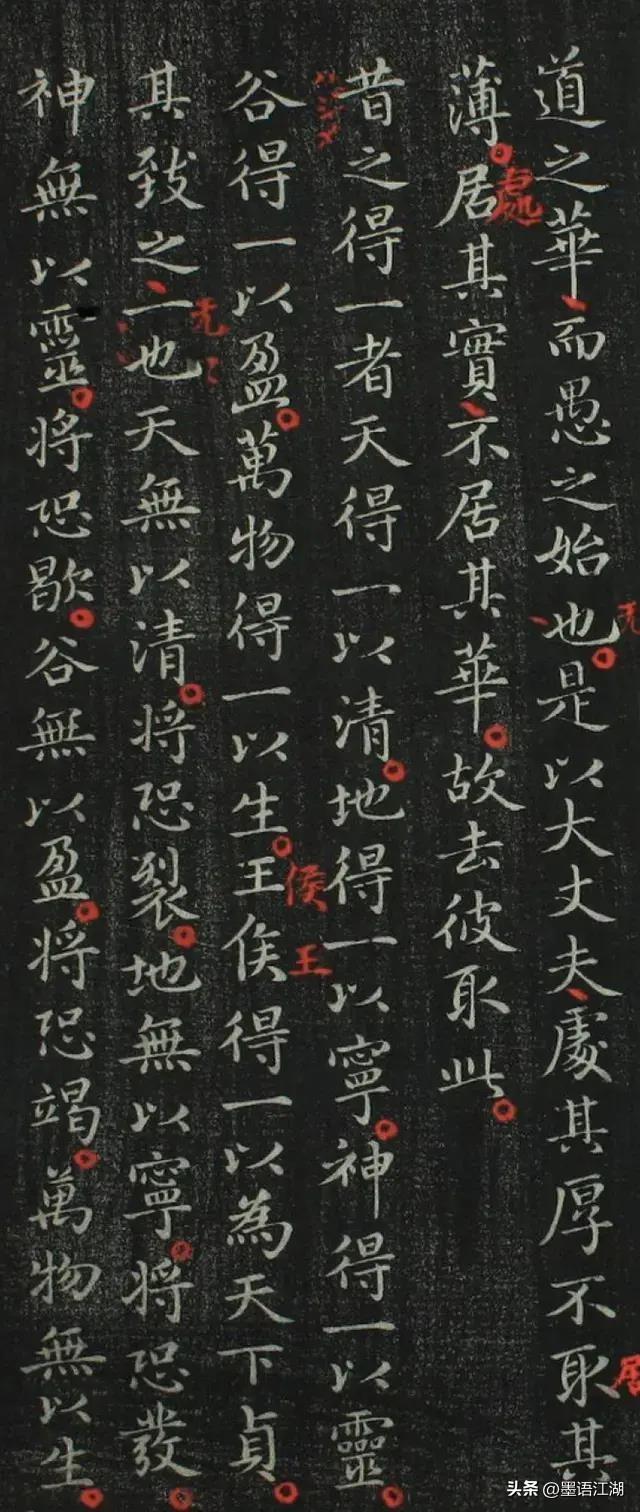 道之華而愚之始也是以大丈夫處其厚不取其
薄居其實不居其華故去彼取此
昔之得一者天得一以清地得一以寧神得一以靈
谷得一以盈萬物得一以生王侯得一以為天下貞
其致之一也天無以清將恐裂地無以寧將恐發
神無以靈將恐歇谷無以盈將恐竭萬物無以生
處
居
侯
王
头条 @墨语江湖